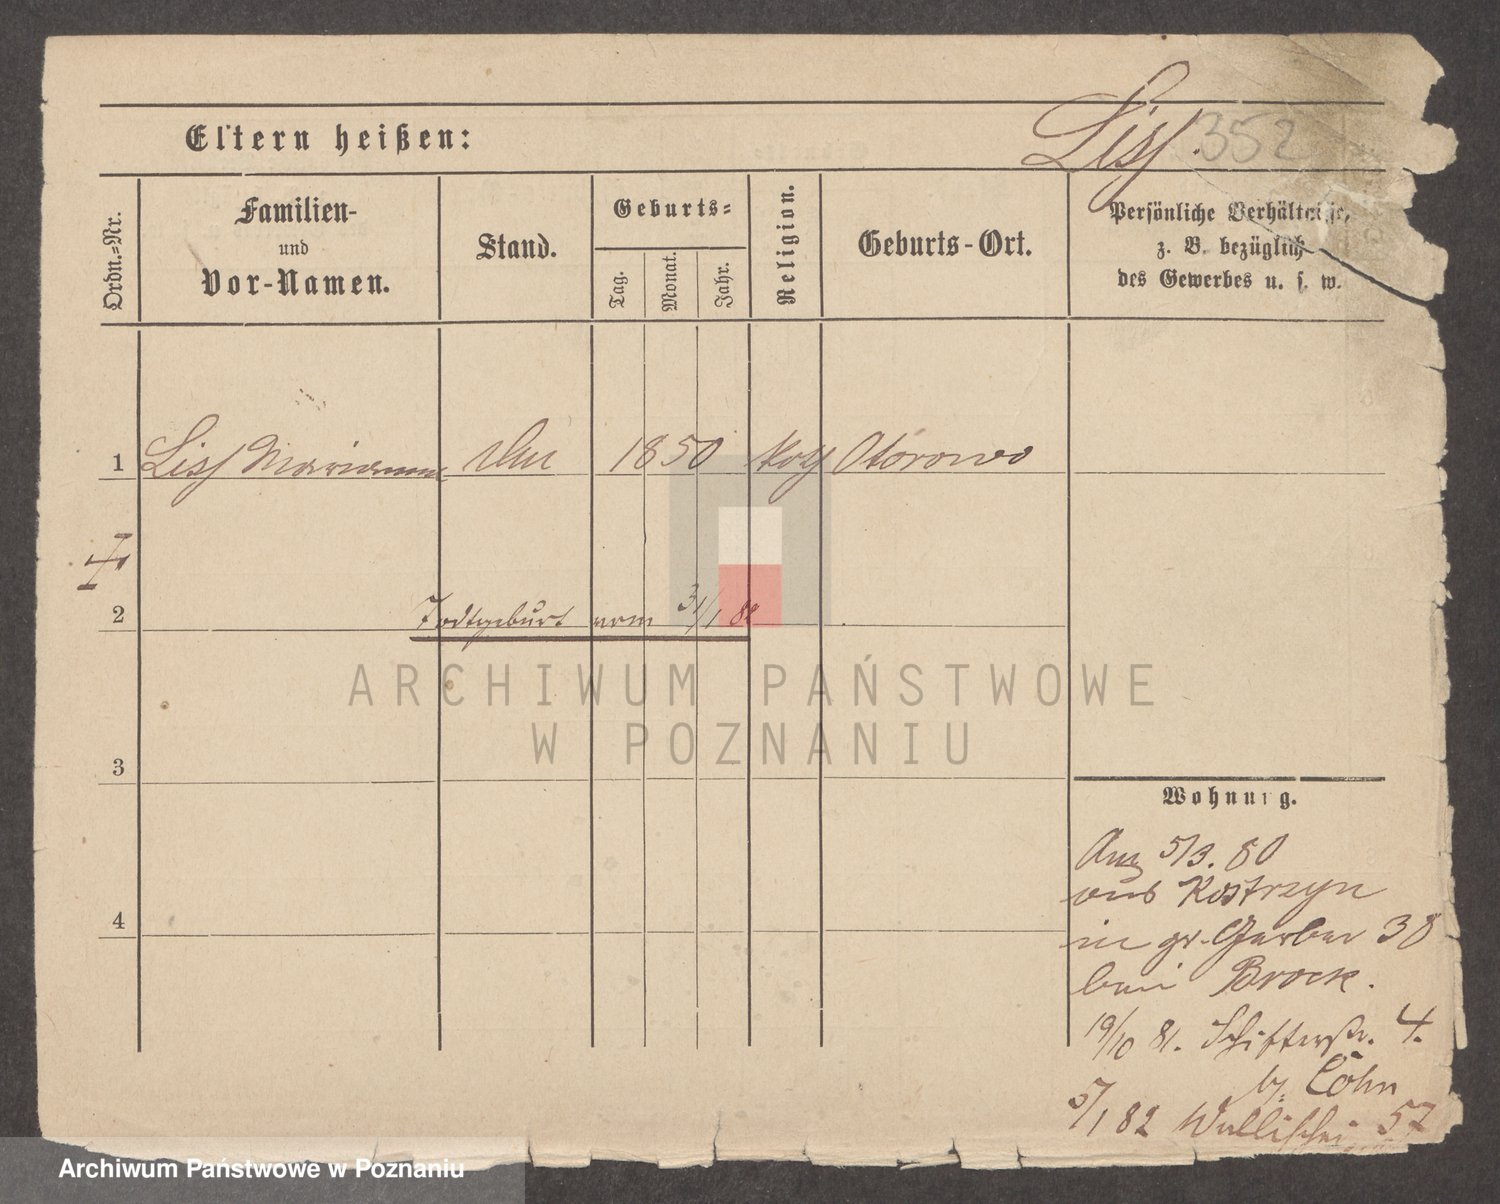 Eltern heißen:
Liss. 352
Ordn.=Nr.
Familien-
und
Vor-Namen.
Stand.
Geburts=
Tag.
Monat.
Jahr.
Religion.
Geburts-Ort.
Persönliche Verhältnisse,
z. B. bezüglich
des Gewerbes u. s. w.
1 Liss Marianna 1850 Kath Otorowo
2 Todtgeburt vom 31/1 82
3
4
Wohnung.
Anz 5/3. 80
aus Kostrzyn
in gr. Gerber 38
bei Brock.
19/10 81. Schifferstr. 4.
b. Cohn
5/1 82 Wallischei 57
ARCHIWUM PAŃSTWOWE
W POZNANIU
Archiwum Państwowe w Poznaniu